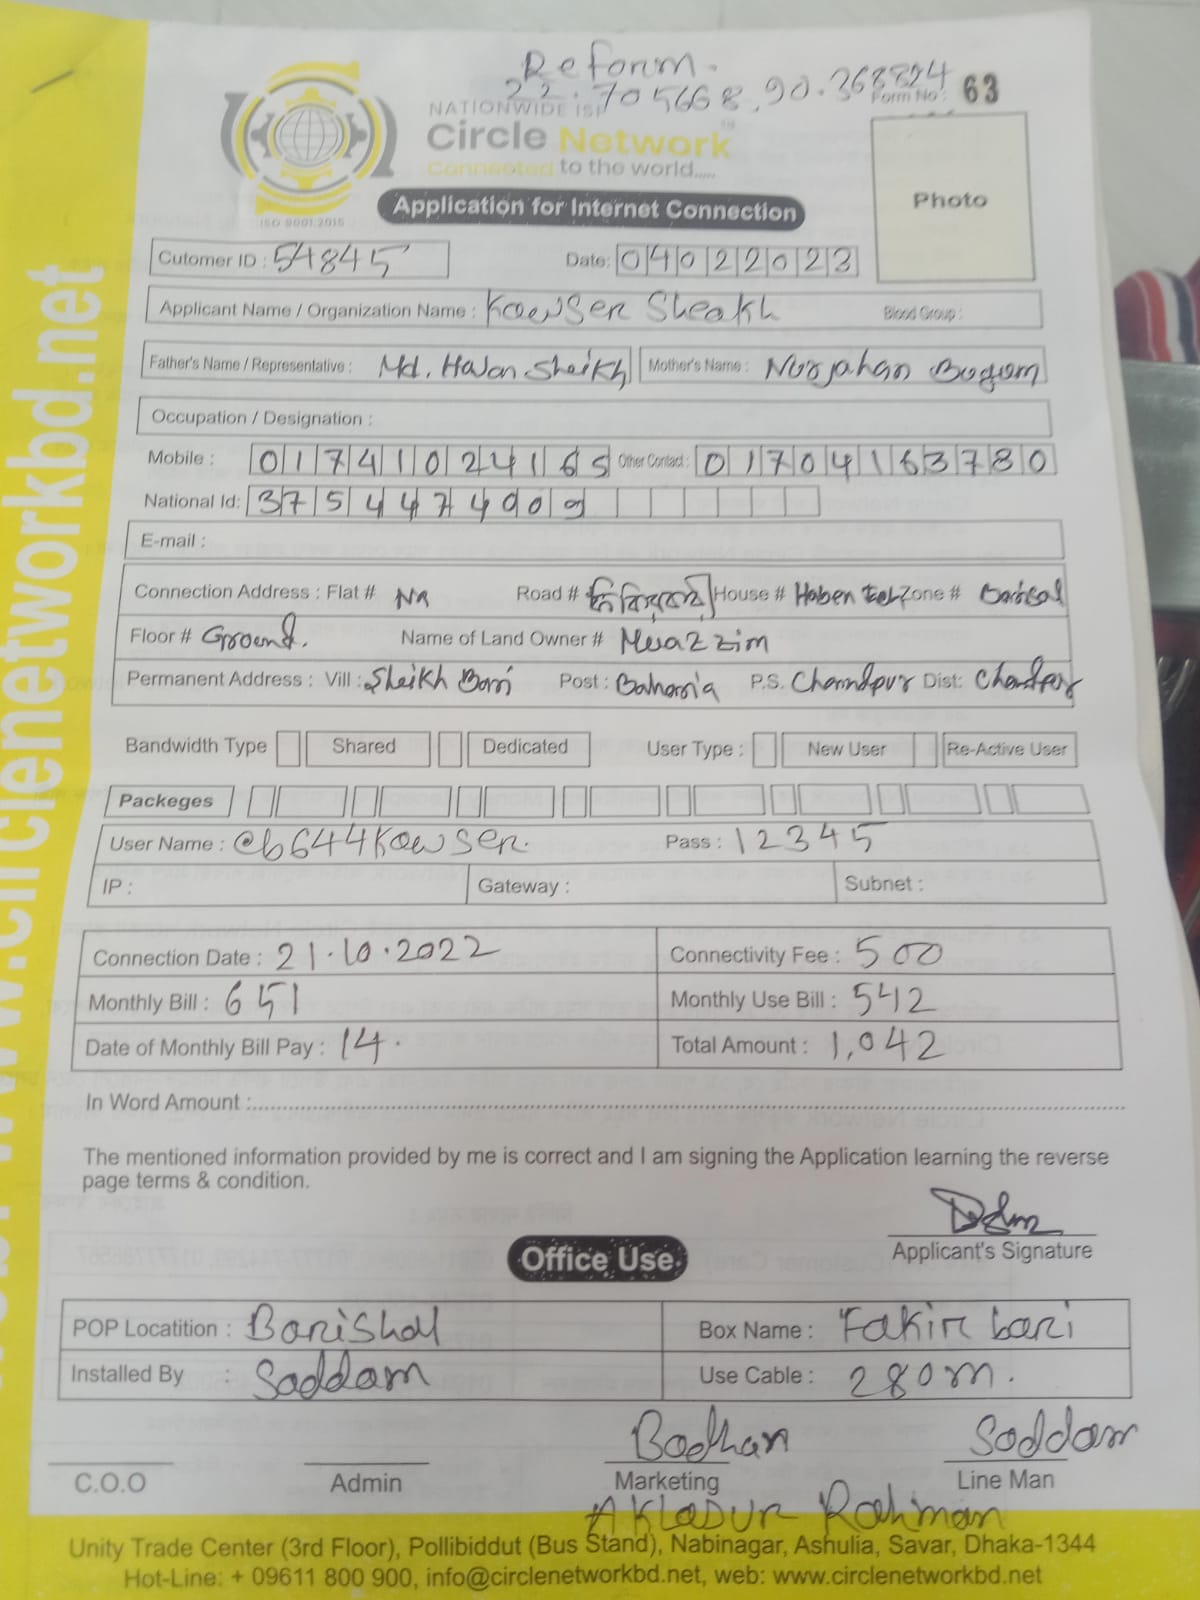 Reform.
22.705668,90.368894
Form No : 63
NATIONWIDE ISP
Circle Network™
Connected to the world.....
ISO 9001:2015
Photo
Application for Internet Connection
Cutomer ID : 54845 Date: 04022023
Applicant Name / Organization Name : Kowser Sheakh Blood Group :
Father's Name / Representative : Md. Halan Sheikh Mother's Name : Nurjahan Begom
Occupation / Designation :
Mobile : 01741024165 Other Contact : 01704163780
National Id: 3754474009
E-mail :
Connection Address : Flat # Na Road # House # Zone # Barisal
Floor # Ground. Name of Land Owner # Muazzim
Permanent Address : Vill : Sheikh Bari Post : Baharia P.S. Chandpur Dist: Chandpur
Bandwidth Type Shared Dedicated User Type : New User Re-Active User
Packeges
User Name : @b644Kowser. Pass : 12345
IP : Gateway : Subnet :
Connection Date : 21.10.2022 Connectivity Fee : 500
Monthly Bill : 651 Monthly Use Bill : 542
Date of Monthly Bill Pay : 14. Total Amount : 1,042
In Word Amount :
The mentioned information provided by me is correct and I am signing the Application learning the reverse
page terms & condition.
Applicant's Signature
Office Use
POP Locatition : Barishal Box Name : Fakir bari
Installed By : Saddam Use Cable : 280m.
Badhan Saddam
C.O.O Admin Marketing Line Man
Akladur Rahman
Unity Trade Center (3rd Floor), Pollibiddut (Bus Stand), Nabinagar, Ashulia, Savar, Dhaka-1344
Hot-Line: + 09611 800 900, info@circlenetworkbd.net, web: www.circlenetworkbd.net
www.circlenetworkbd.net